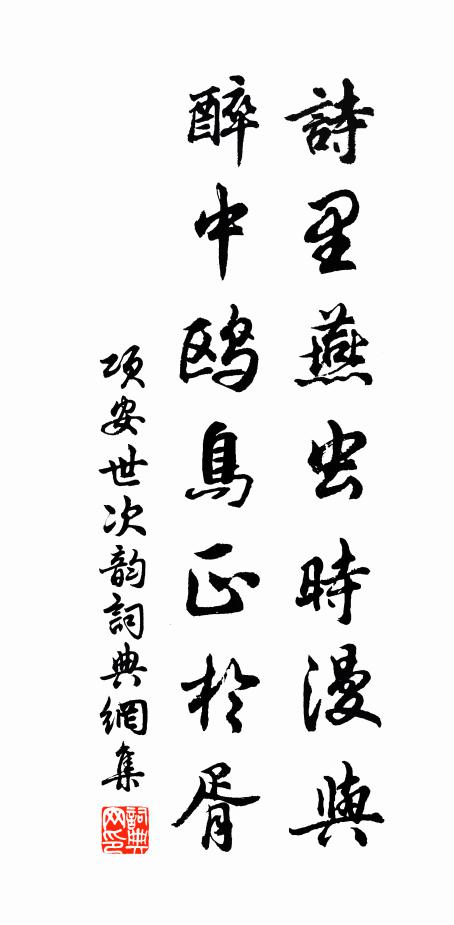 詩里燕虫時漫與
醉中鸥鳥正於胥
项安世次韵詞典網集
詞典网印